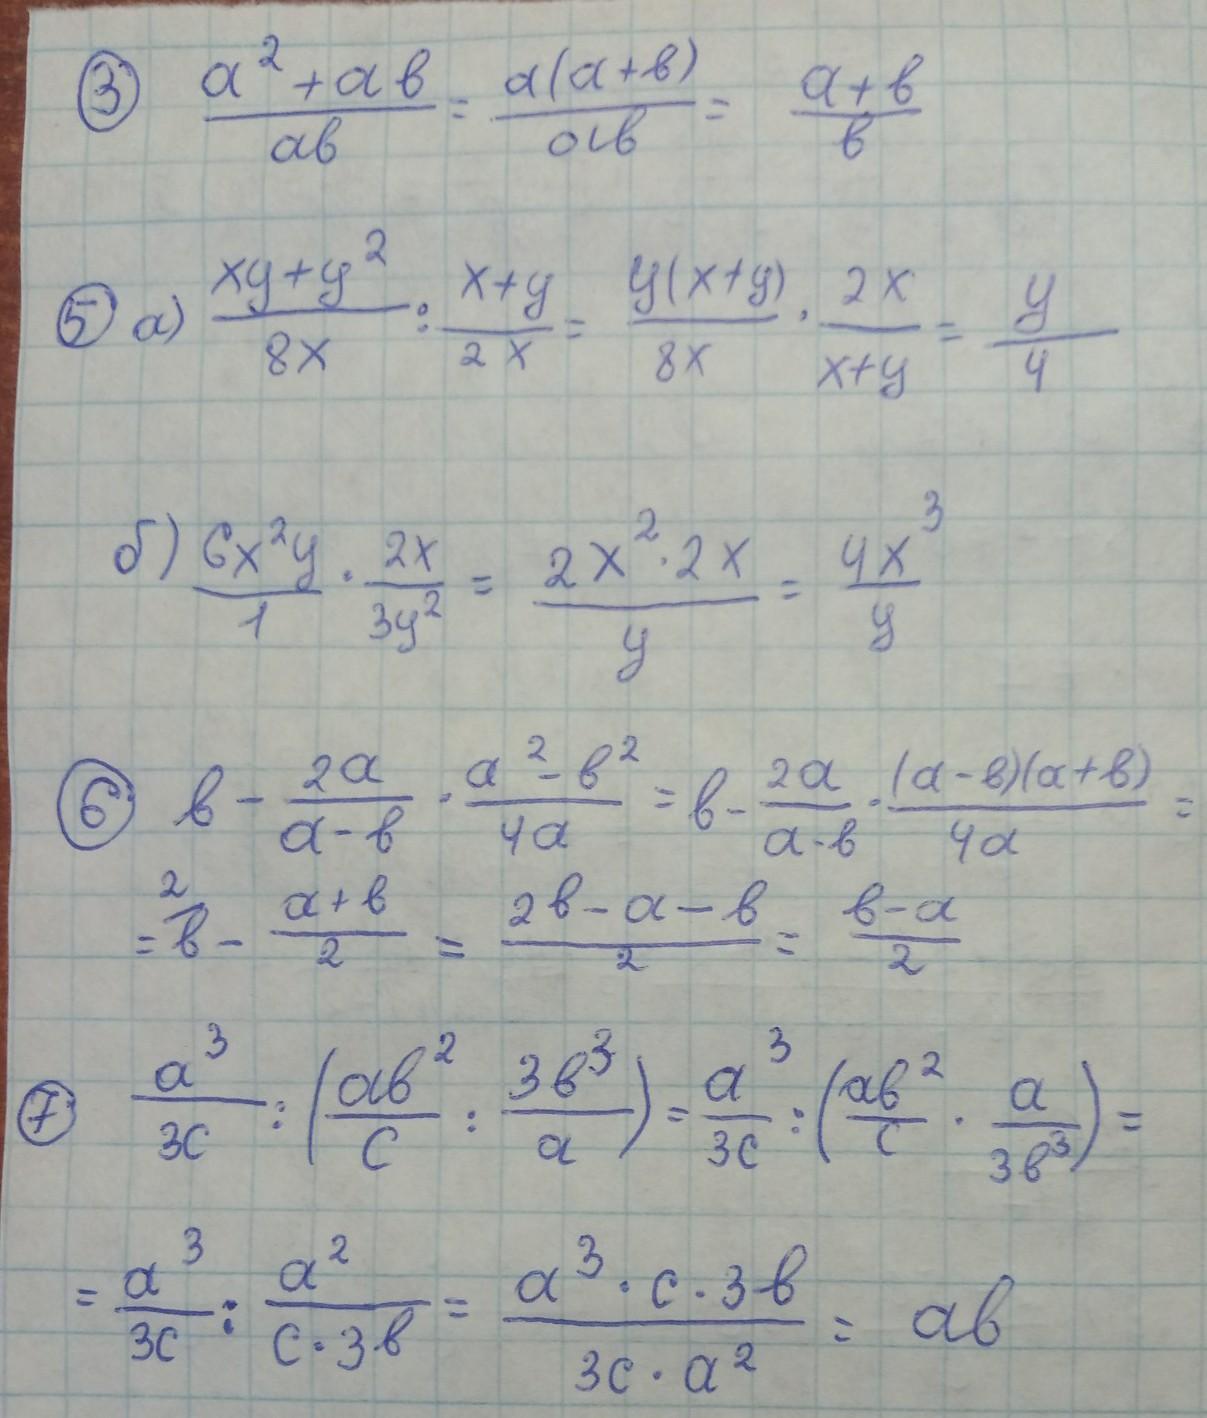 ③ (a² + ab)/(ab) = (a(a+b))/(ab) = (a+b)/b
⑤ а) (xy+y²)/(8x) : (x+y)/(2x) = (y(x+y))/(8x) · (2x)/(x+y) = y/4
б) (6x²y)/1 · (2x)/(3y²) = (2x²·2x)/y = (4x³)/y
⑥ b - (2a)/(a-b) · (a²-b²)/(4a) = b - (2a)/(a-b) · ((a-b)(a+b))/(4a) =
= ²b - (a+b)/2 = (2b-a-b)/2 = (b-a)/2
⑦ a³/(3c) : ((ab²)/c : (3b³)/a) = a³/(3c) : ((ab²)/c · a/(3b³)) =
= a³/(3c) : a²/(c·3b) = (a³·c·3b)/(3c·a²) = ab